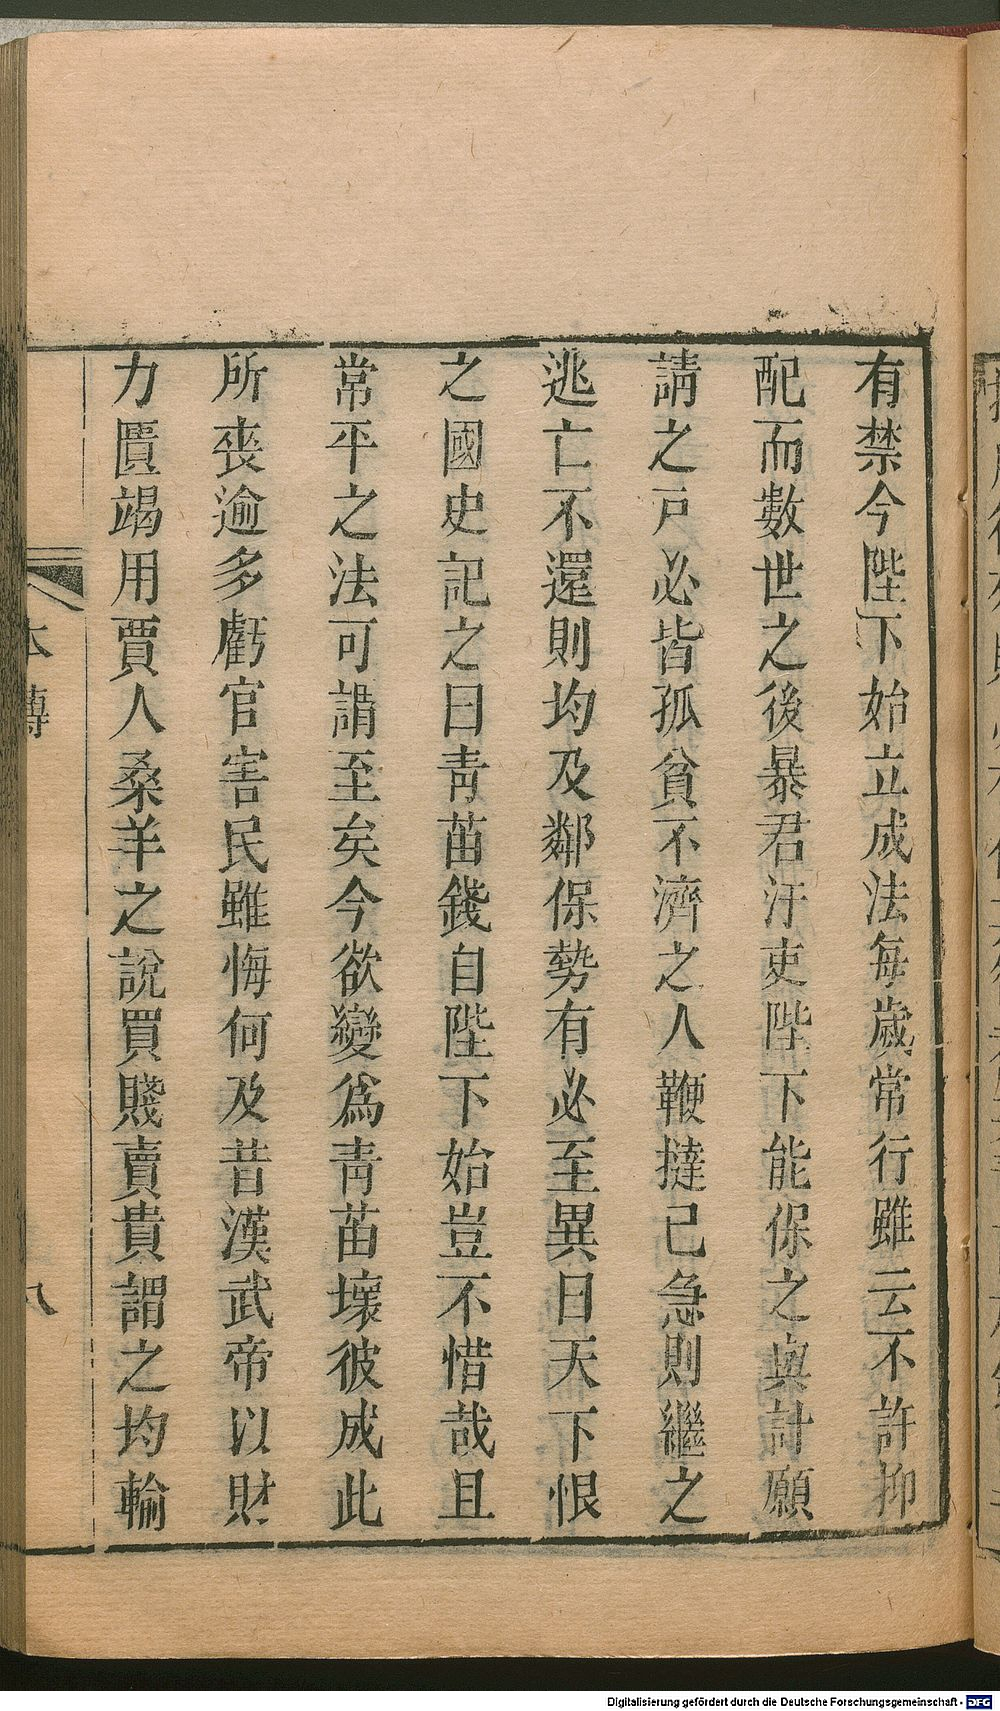 有禁今陛下始立成法每歲常行雖云不許抑
配而數世之後暴君汙吏陛下能保之與計願
請之戸必皆孤貧不濟之人鞭撻已急則繼之
逃亡不還則均及鄰保勢有必至異日天下恨
之國史記之曰青苗錢自陛下始豈不惜哉且
常平之法可謂至矣今欲變爲青苗壞彼成此
所喪逾多虧官害民雖悔何及昔漢武帝以財
力匱竭用賈人桑羊之說買賤賣貴謂之均輸
本傳
八
Digitalisierung gefördert durch die Deutsche Forschungsgemeinschaft - DFG